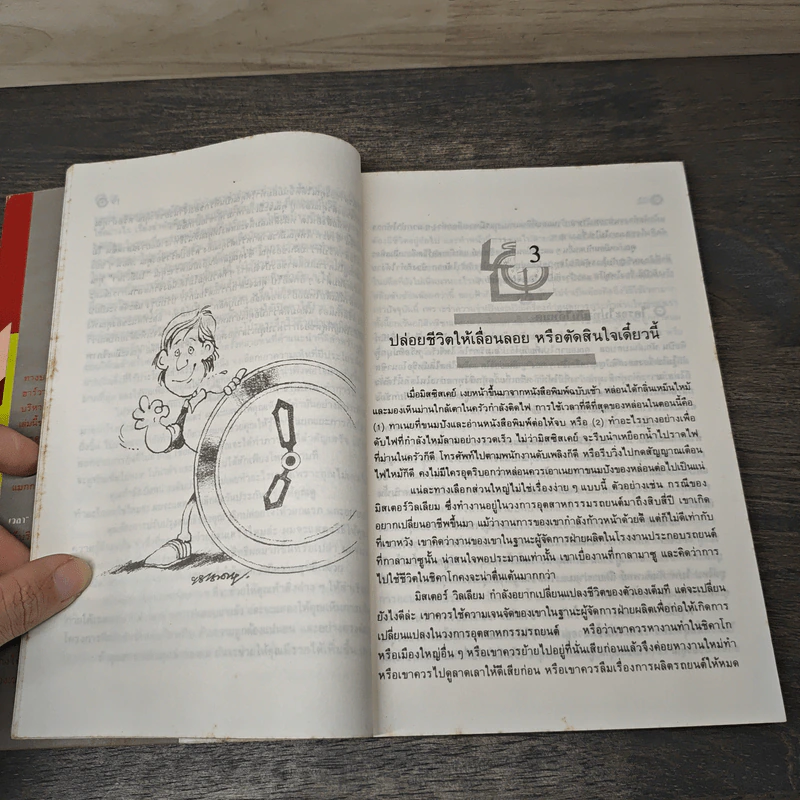 3
ปล่อยชีวิตให้เลื่อนลอย หรือตัดสินใจเดี๋ยวนี้
เมื่อมิสซิสเคย์ เงยหน้าขึ้นมาจากหนังสือพิมพ์ฉบับเช้า หล่อนได้กลิ่นเหม็นไหม้
และมองเห็นม่านใกล้เตาในครัวกำลังติดไฟ การใช้เวลาที่ดีที่สุดของหล่อนในตอนนี้คือ
(1) ทาเนยที่ขนมปังและอ่านหนังสือพิมพ์ต่อให้จบ หรือ (2) ทำอะไรบางอย่างเพื่อ
ดับไฟที่กำลังไหม้ลามอย่างรวดเร็ว ไม่ว่ามิสซิสเคย์ จะรีบนำเหยือกน้ำไปราดไฟ
ที่ม่านในครัวก็ดี โทรศัพท์ไปตามพนักงานดับเพลิงก็ดี หรือรีบวิ่งไปกดสัญญาณเตือน
ไฟไหม้ก็ดี คงไม่มีใครอุตริบอกว่าหล่อนควรเอาเนยทาขนมปังของหล่อนต่อไปเป็นแน่
แน่ละทางเลือกส่วนใหญ่ไม่ใช่เรื่องง่าย ๆ แบบนี้ ตัวอย่างเช่น กรณีของ
มิสเตอร์วิลเลียม ซึ่งทำงานอยู่ในวงการอุตสาหกรรมรถยนต์มาถึงสิบสี่ปี เขาเกิด
อยากเปลี่ยนอาชีพขึ้นมา แม้ว่างานการของเขากำลังก้าวหน้าด้วยดี แต่ก็ไม่ดีเท่ากับ
ที่เขาหวัง เขาคิดว่างานของเขาในฐานะผู้จัดการฝ่ายผลิตในโรงงานประกอบรถยนต์
ที่กาลามาซูนั้น น่าสนใจพอประมาณเท่านั้น เขาเบื่องานที่กาลามาซู และคิดว่าการ
ไปใช้ชีวิตในชิคาโกคงจะน่าตื่นเต้นมากกว่า
มิสเตอร์ วิลเลียม กำลังอยากเปลี่ยนแปลงชีวิตของตัวเองเต็มที แต่จะเปลี่ยน
ยังไงดีล่ะ เขาควรใช้ความเจนจัดของเขาในฐานะผู้จัดการฝ่ายผลิตเพื่อก่อให้เกิดการ
เปลี่ยนแปลงในวงการอุตสาหกรรมรถยนต์ หรือว่าเขาควรหางานทำในชิคาโก
หรือเมืองใหญ่อื่น ๆ หรือเขาควรย้ายไปอยู่ที่นั่นเสียก่อนแล้วจึงค่อยหางานใหม่ทำ
หรือเขาควรไปดูลาดเลาให้ดีเสียก่อน หรือเขาควรลืมเรื่องการผลิตรถยนต์ให้หมด